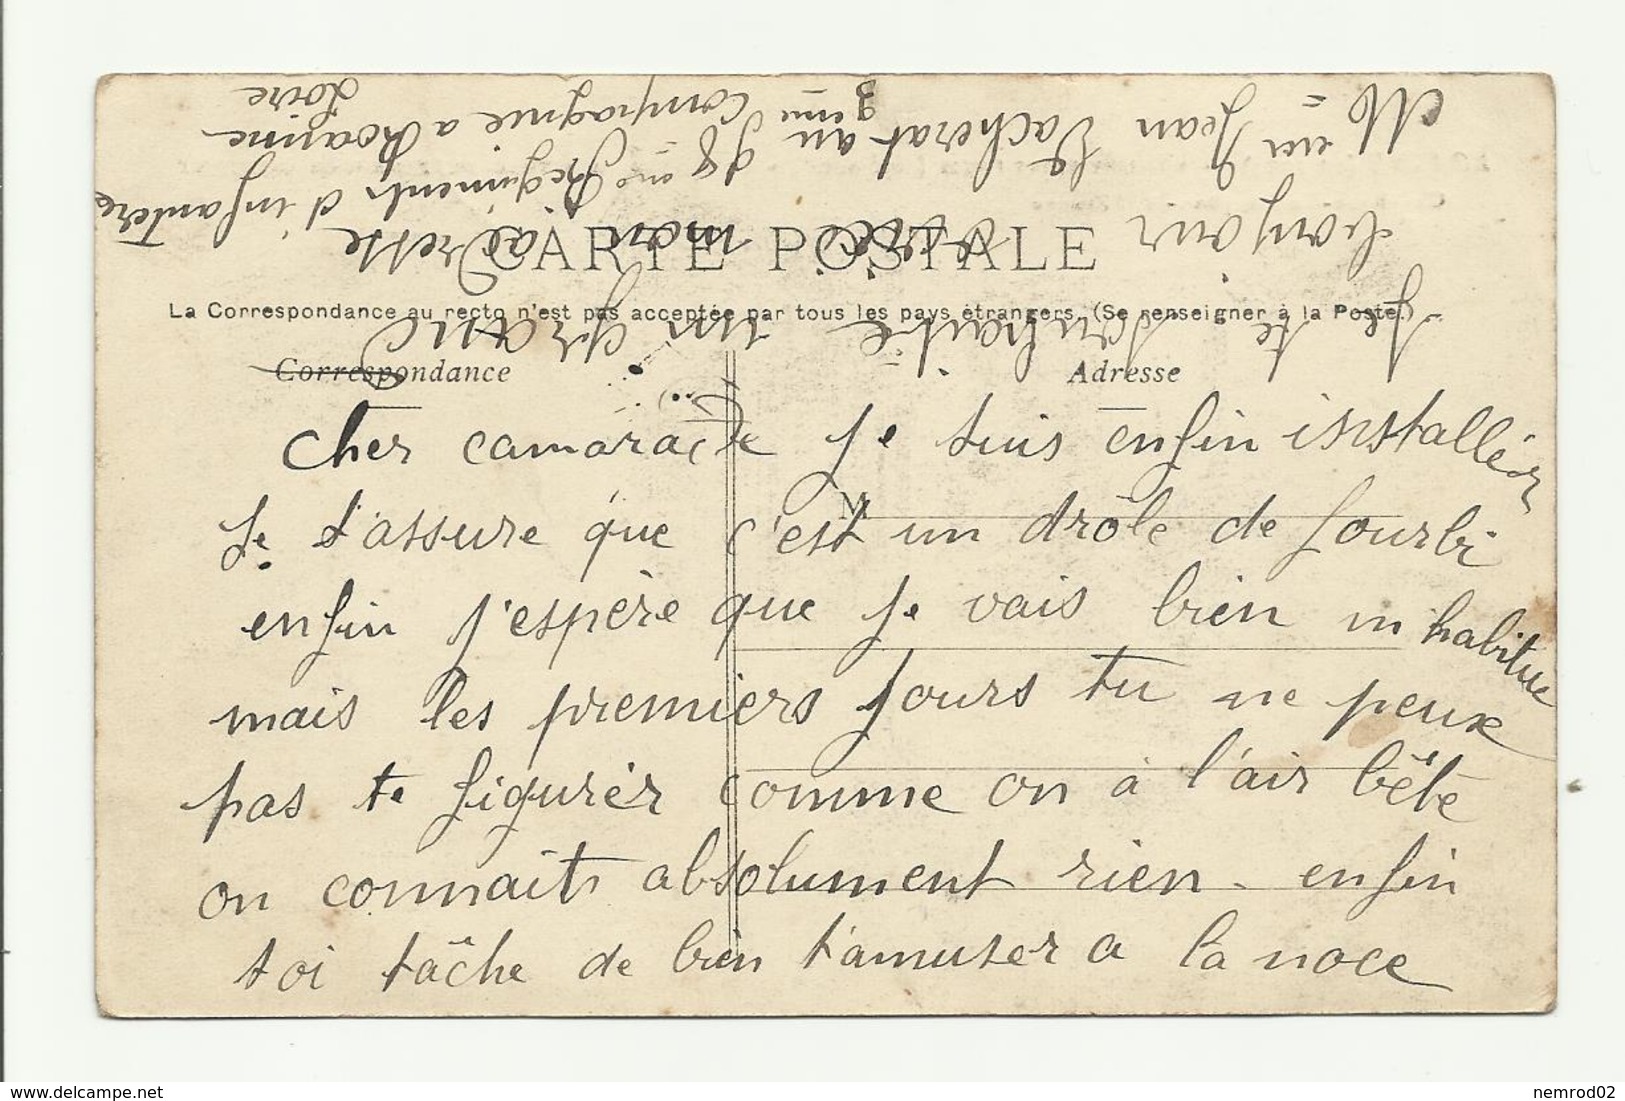 CARTE POSTALE
La Correspondance au recto n'est pas acceptée par tous les pays étrangers. (Se renseigner à la Poste.)
Correspondance
Adresse
M
cher camarade je suis enfin installér
Je t'assure que c'est un drôle de fourbi
enfin j'espère que je vais bien m habitue
mais les premiers jours tu ne peux
pas te figurér comme on à l'air bête
on connait absolument rien. enfin
toi tâche de bien t'amuser a la noce
Je te souhaite un grand
bonjour voici mon adresse
M eur Jean Vacherat au 98 eme Regiments d'infanterie
3 eme Compagnie a Roanne
Loire
delcampe.net
nemrod02